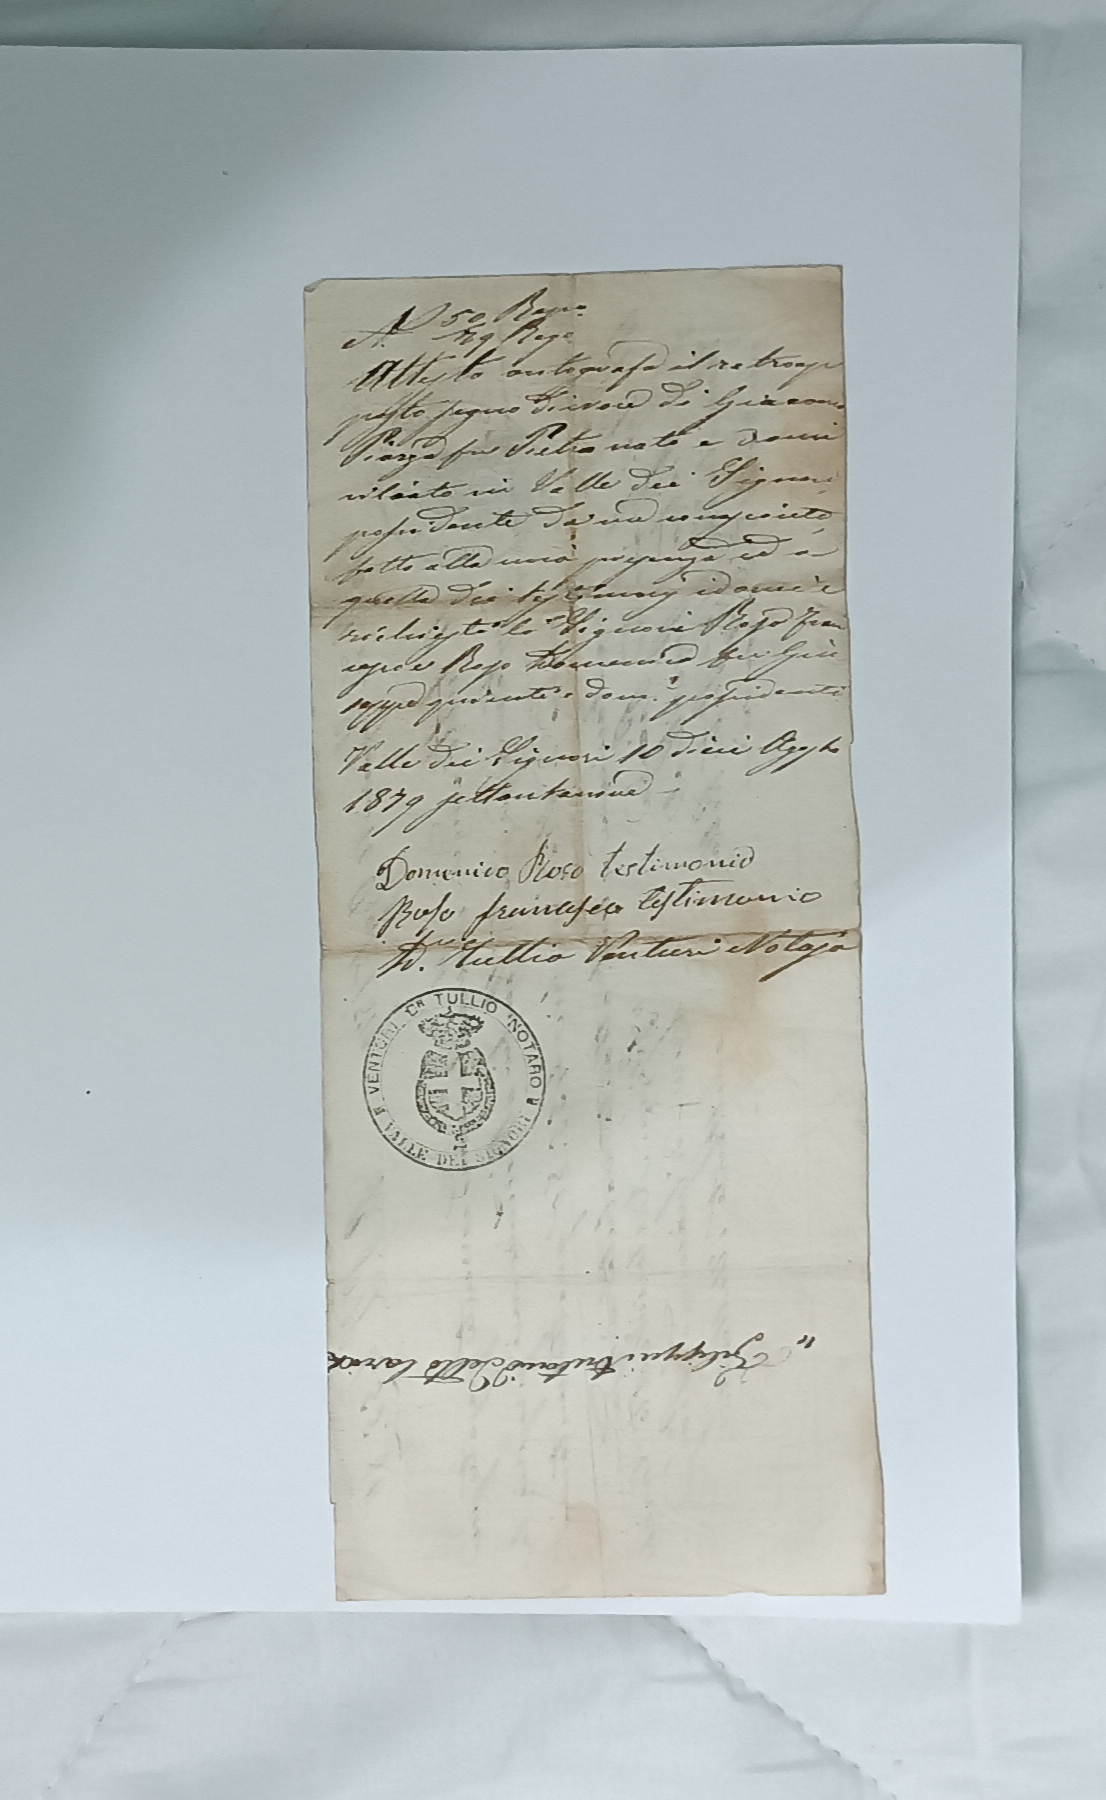 N.° 50 Rep.°
N.° 49 Reg.
Attesto autografo il retroap
posto segno di croce di Giacomo
Piazza fu Pietro nato e domi
ciliato in Valle dei Signori
possidente da me conosciuto
fatto alla mia presenza ed a
quella dei testimonj idonei e
richiesti li Signori Roso Fran
cesco e Roso Domenico fu Giu
seppe qui nati e dom.ti possidenti
Valle dei Signori 10 dieci Agosto
1879 settantanove
Domenico Roso testimonio
Roso Francesco testimonio
D.r Tullio Venturi Notajo
VENTURI Dr TULLIO NOTARO
VALLE DEI SIGNORI
Filippi Antonio detto